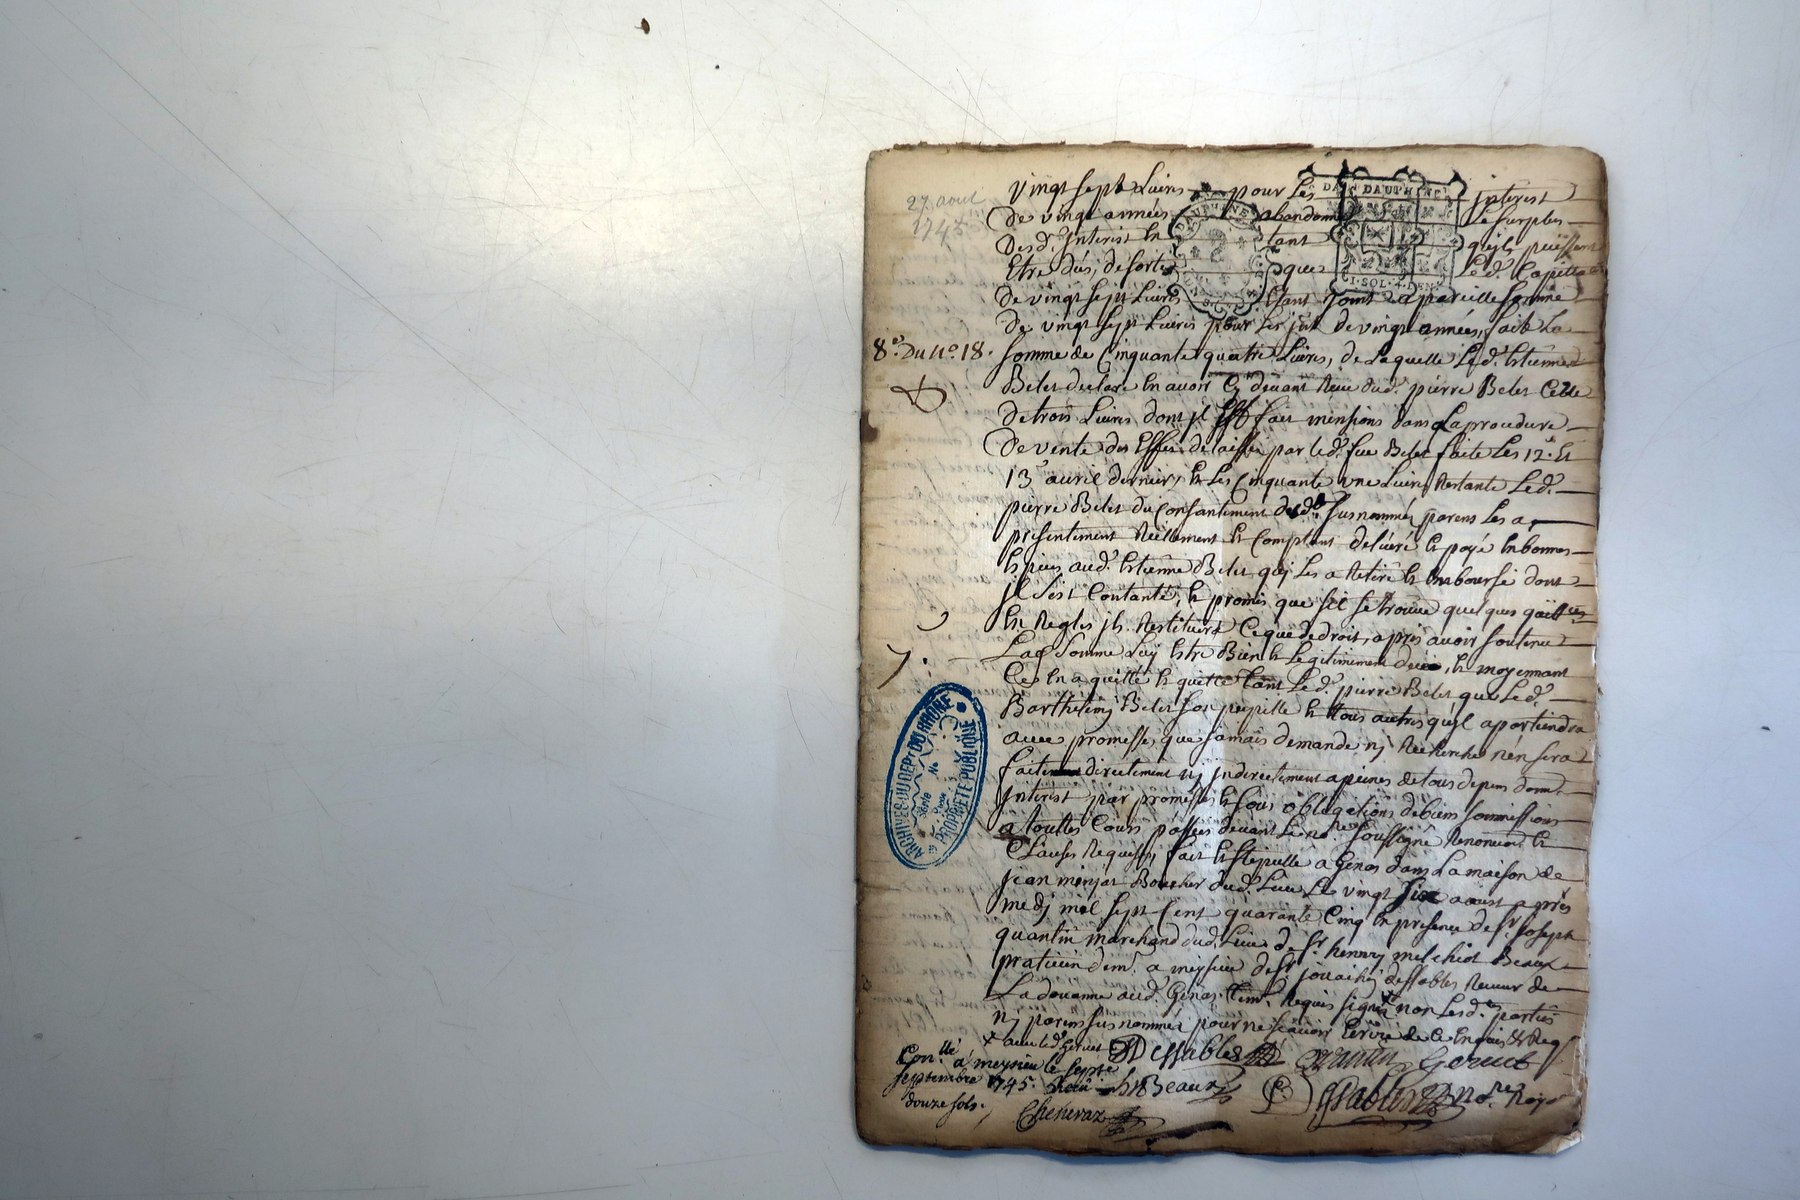 27 aout
1745
vingt sept Livres pour Les interest
De vingt années abandonne Le surplus
Desd. Interest En tant qu'ils puissent
Etre dûs, de sorte que Led. Capital
De vingt sept Livres Etant joint a pareille somme
De vingt sept Livres pour Les int. de vingt années, fait La
somme de Cinquante quatre Livres, de Laquelle Led. Estienne
Belet declare En avoir Cy devant Receu dud. pierre Belet Celle
De trois Livres dont il Est fait mension dans La procedure
De vente des Effets delaissés par led. feu Belet faite Les 12.e Et
13.e avril dernier, Et Les Cinquante une Livres Restante Led.
pierre Belet du Consantement desd. susnommés parens Les a
presentement Reellement Et Comptant delivré Et payé En bonnes
Espèces aud. Estienne Belet qui Les a Retiré Et Emboursé dont
il s'est Contanté, Et promis que s'il se trouve quelques quittances
En Regles il Restituera Ce que de droit, apres avoir soutenu
Lad. somme Luy Estre Bien Et Legitimement deüe, Et moyennant
Ce En a quitté Et quitte tant Led. pierre Belet que Led.
Barthelemy Belet son pupille Et tous autres qu'il apartiendra
avec promesse que jamais demande ny Recherche n'en sera
faite directement ny Indirectement a peines de tous depens dom.
Interest par promesses Et sous obligations de biens soumissions
a touttes Cours passées devant Le no.re soussigné Renonciaõn Et
Clauses Requises, fait Et stipulle a Genas dans La maison de
Jean monjat Boucher dud. Lieu Le vingt six aoust apres
medj mil sept Cent quarante Cinq En presence de Sr. Joseph
quantin marchand dud. Lieu de Sr. henry melchiot Beaux
praticien dem.t a meysieu de Sr Joachin dessables Receveur de
La douanne aud. Genas tem. Requis signés non Lesd. parties
ny parens susnommés pour ne sçavoir
x avec led. Gervet
8.e Du N.o 18.
7.
ARCHIVES DU DEPT DU RHÔNE
Série
No
PROPRIÉTÉ PUBLIQUE
DAUPHINE
DAUPHINE
Con.llé a meysieu le sept.e
septembre 1745. Receu
douze sols.
Cheneraz
Dessables
Quantin
Gervet
hBeaux
Dessables No.re Royal